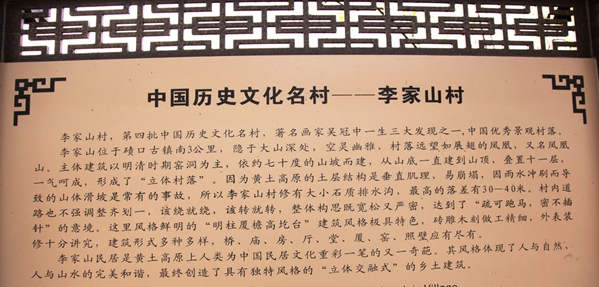 中国历史文化名村——李家山村
李家山村，第四批中国历史文化名村，著名画家吴冠中一生三大发现之一，中国优秀景观村落。
李家山位于碛口古镇南3公里，隐于大山深处，空灵幽雅，村落远望如展翅的凤凰，又名凤凰
山。主体建筑以明清时期窑洞为主，依约七十度的山坡而建，从山底一直建到山顶，叠置十一层，
一气呵成，形成了“立体村落”。因为黄土高原的土层结构是垂直肌理，易崩塌，因雨水冲刷而导
致的山体滑坡是常有的事故，所以李家山村修有大小石质排水沟，最高的落差有30—40米。村内道
路也不强调整齐划一，该绕就绕，该转就转，整体构思既宽松又严密，达到了“疏可跑马，密不插
针”的意境。这里风格鲜明的“明柱厦檐高圪台”建筑风格极具特色，砖雕木刻做工精细，外表装
修十分讲究，建筑形式多种多样，桥、庙、房、厅、堂、厦、窑、照壁应有尽有。
李家山民居是黄土高原上人类为中国民居文化重彩一笔的又一奇葩。其风格体现了人与自然、
人与山水的完美和谐，最终创造了具有独特风格的“立体交融式”的乡土建筑。
Village